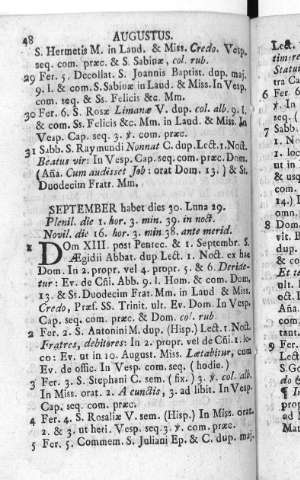 48 AUGUSTUS.
S. Hermetis M. in Laud. & Miss. Credo. Vesp.
seq. com. præc. & S. Sabinæ, col. rub.
29 Fer. 5. Decollat. S. Joannis Baptist. dup. maj.
9. l. & com. S. Sabinæ in Laud. & Miss. In Vesp.
com. seq. & Ss. Felicis &c. Mm.
30 Fer. 6. S. Rosæ Limanæ V. dup. col. alb. 9. l.
& com. Ss. Felicis &c. Mm. in Laud. & Miss. In
Vesp. Cap. seq. 3. ℣. com. præc.
31 Sabb. S. Raymundi Nonnat C. dup. Lect. 1. Noct.
Beatus vir: In Vesp. Cap. seq. com. præc. Dom.
(Aña. Cum audisset Job: orat Dom. 13.) & St.
Duodecim Fratr. Mm.
SEPTEMBER habet dies 30. Luna 29.
Plenil. die 1. hor. 3. min. 39. in noct.
Novil. die 16. hor. 3. min. 38. ante merid.
1 Dom XIII. post Pentec. & 1. Septembr. S.
Ægidii Abbat. dup Lect. 1. Noct. ex hac
Dom. In 2. propr. vel 4. propr. 5. & 6. Deride-
tur: Ev. de Cñi. Abb. 9. l. Hom. & com. Dom.
13. & St. Duodecim Frat. Mm. in Laud. & Miss.
Credo, Præf. SS. Trinit. ult. Ev. Dom. In Vesp.
Cap. seq. com. præc. & Dom. col. rub.
2 Fer. 2. S. Antonini M. dup. (Hisp.) Lect. 1. Noct.
Fratres, debitores: In 2. propr. vel de Cñi. 1. lo-
co: Ev. ut in 10. August. Miss. Lætabitur, cum
Ev. de offic. In Vesp. com. seq. (hodie.)
3 Fer. 3. S. Stephani C. sem. (fix.) 3. ℣. col. alb.
In Miss. orat. 2. A cunctis, 3. ad libit. In Vesp.
Cap. seq. com. præc.
4 Fer. 4. S. Rosaliæ V. sem. (Hisp.) In Miss. orat.
2. & 3. ut heri. Vesp. seq. 3. ℣. com. præc.
5 Fer. 5. Commem. S. Juliani Ep. & C. dup. maj.